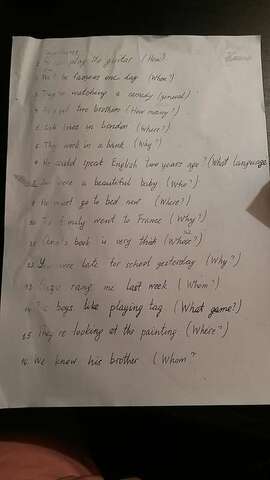 play the guitar (How?)
be famous one day (When?)
watching a comedy (general)
two brothers (How many?)
lives in London (Where?)
6. They work in a bank (Why?)
He could speak English two years ago? (What language
were a beautiful baby (Who?)
9. He must go to bed now (Where?)
10. family went to France (Why?)
11. book is very thick (Whose?)
12. You were late for school yesterday (Why?)
13. rang me last week (Whom?)
14. boys like playing tag (What game?)
15. They're looking at the painting (Where?)
16. We know his brother (Whom?